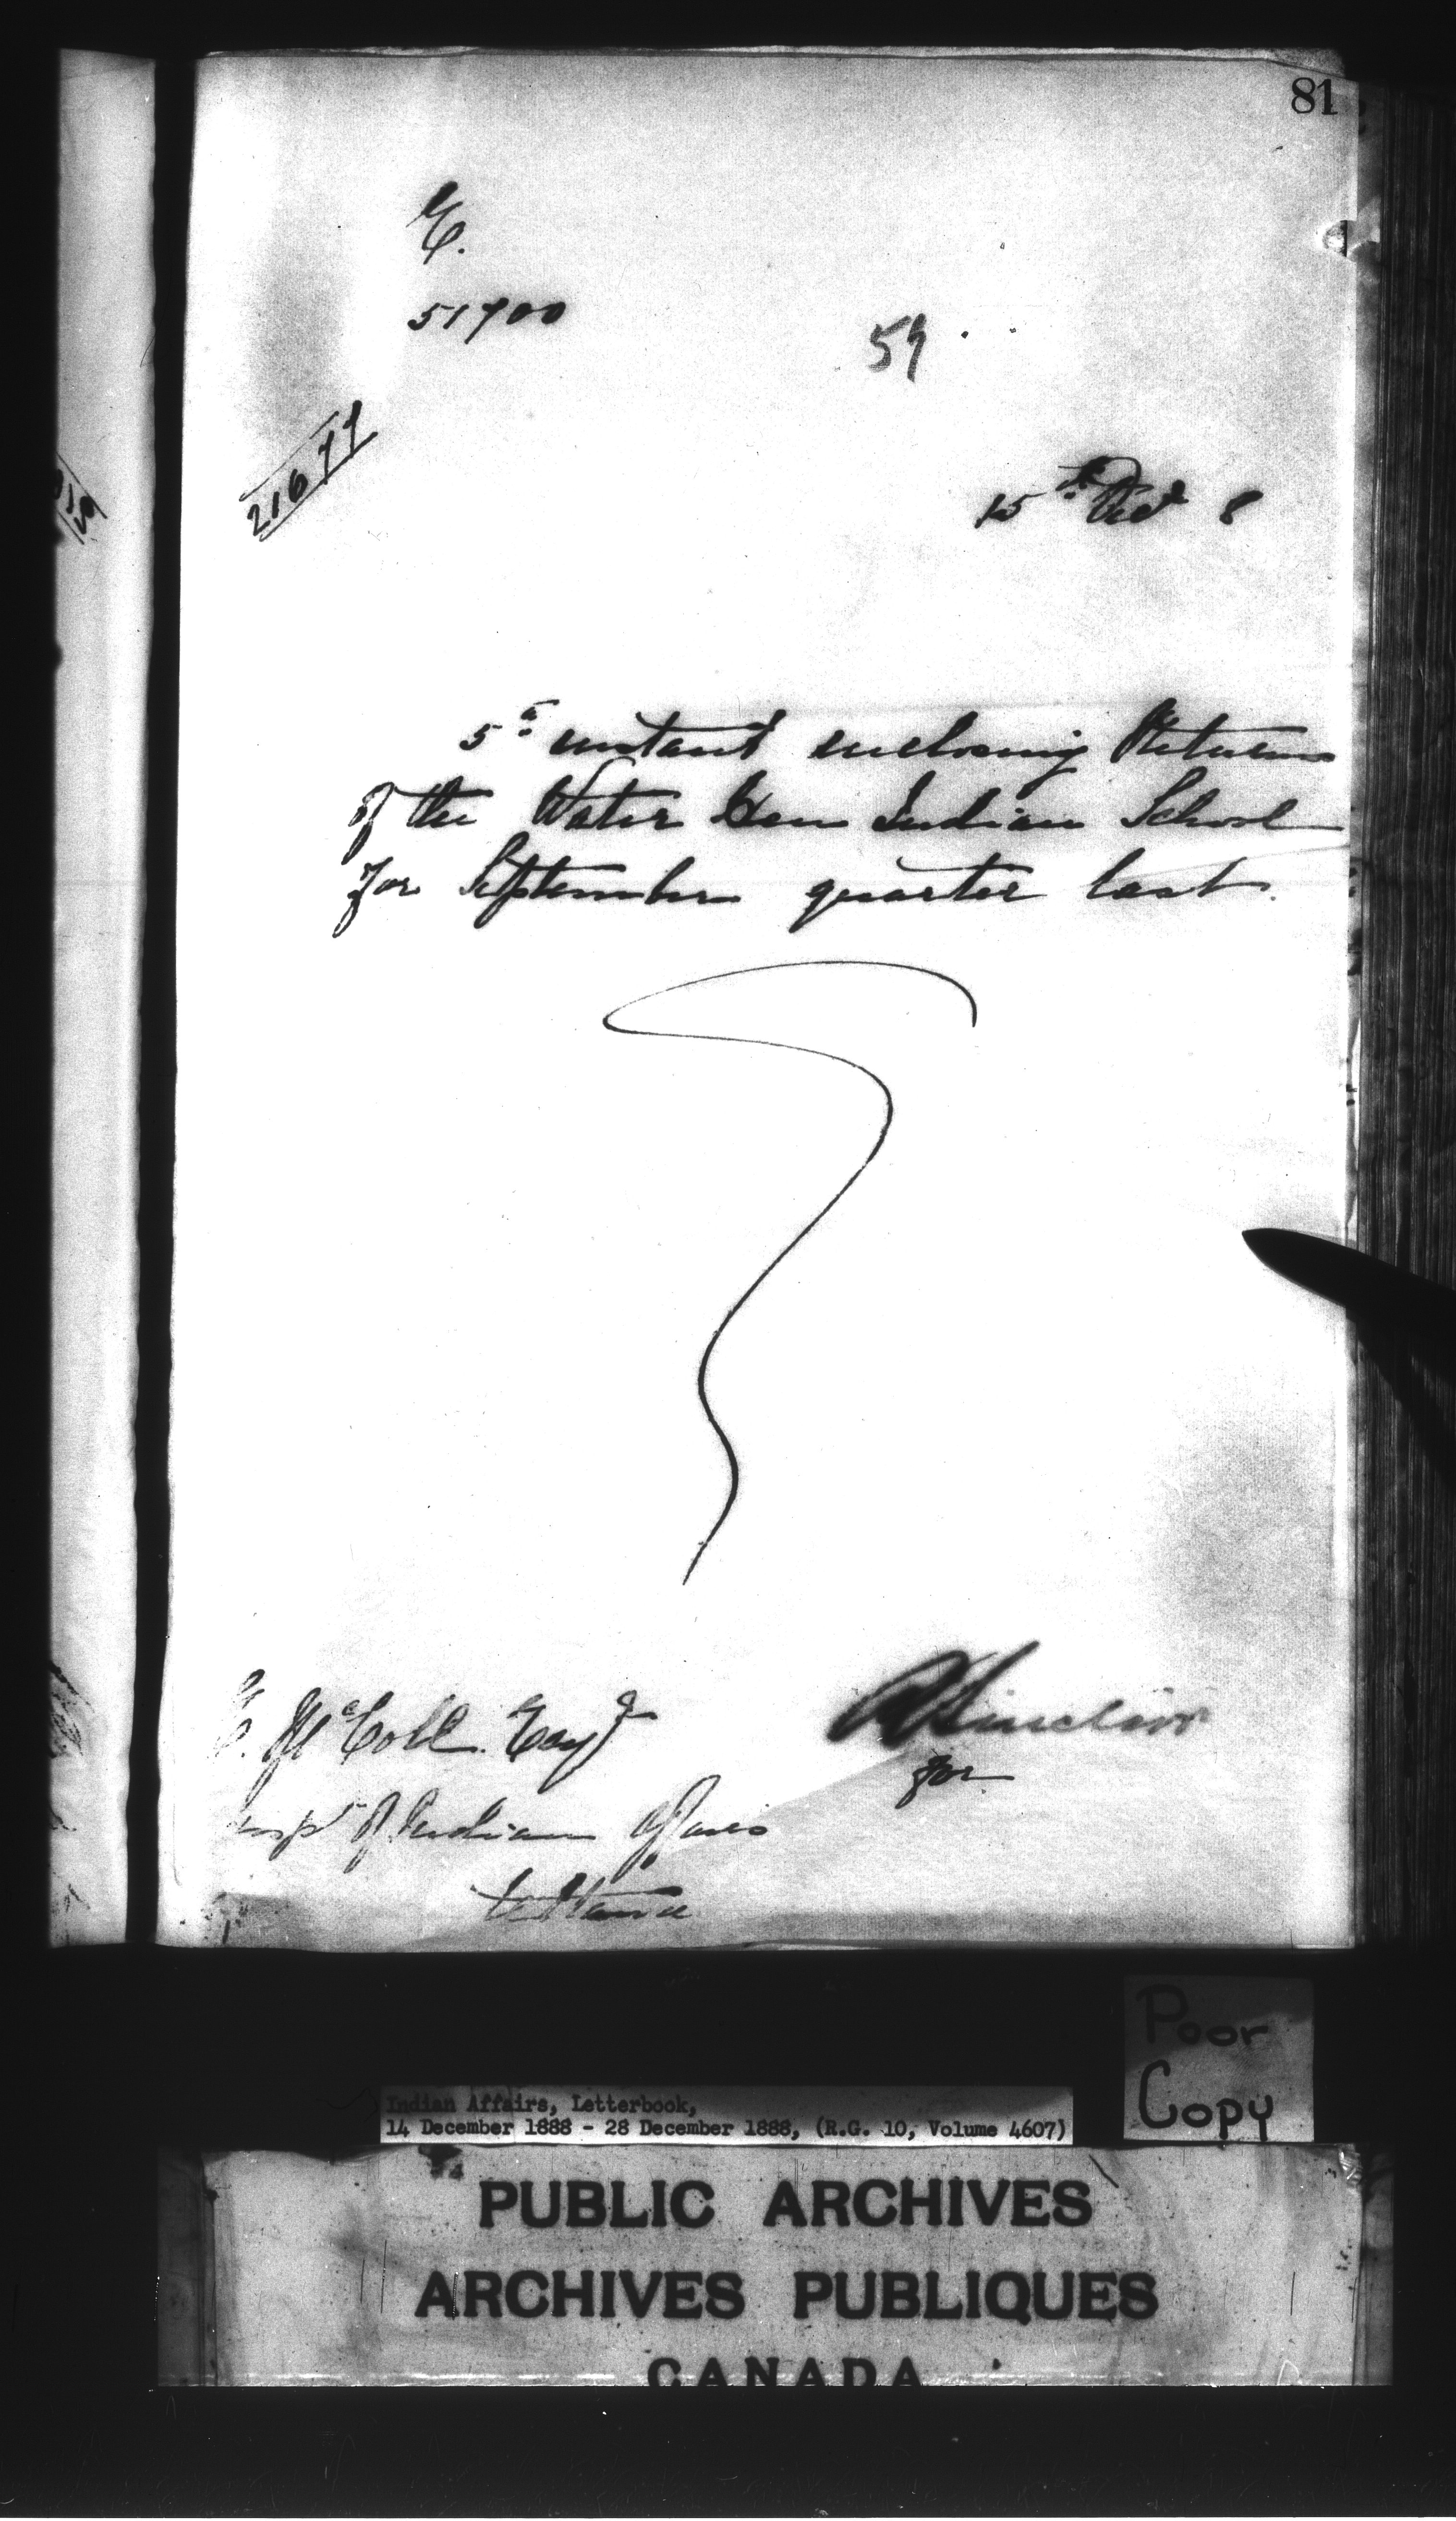 81
E.
51700
59
21677
15th Dec 8
5th instant enclosing Returns
of the Water Hen Indian School
for September quarter last.
E. McColl. Esqr
Insp of Indian Agencies
Ottawa
RSinclair
for
Poor
Copy
Indian Affairs, Letterbook,
14 December 1888 - 28 December 1888, (R.G. 10, Volume 4607)
PUBLIC ARCHIVES
ARCHIVES PUBLIQUES
CANADA